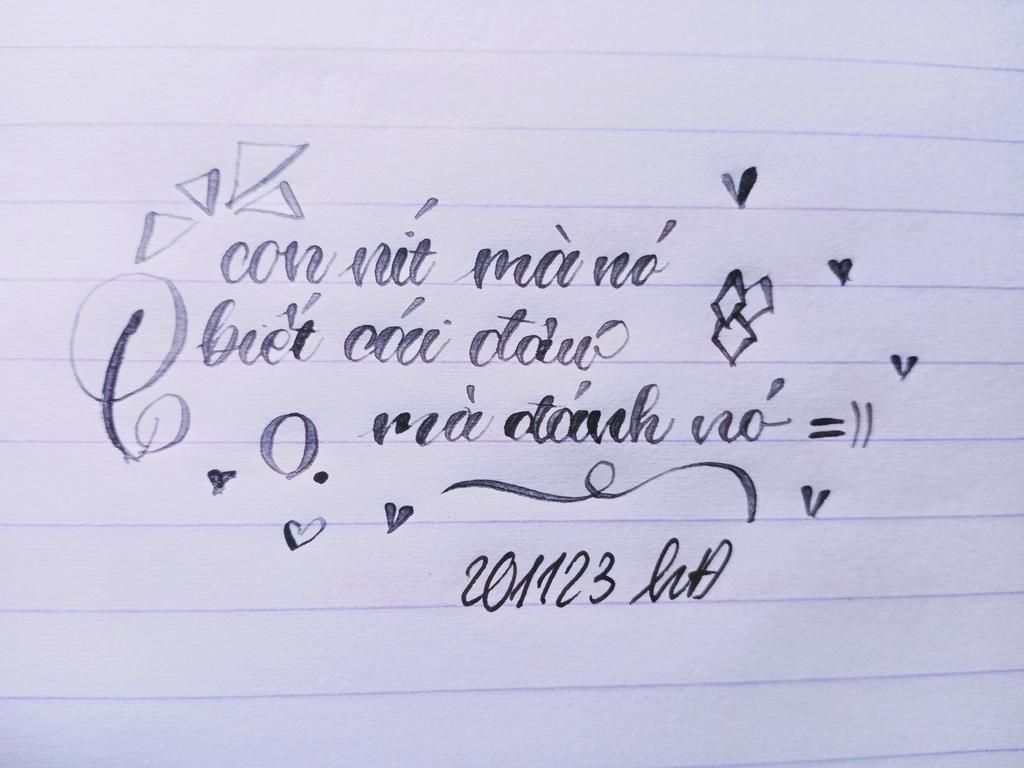 con nít mà nó
biết cái đâu
mà đánh nó =))
201123